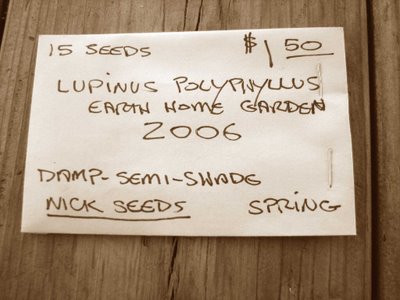 15 SEEDS $1 50
LUPINUS POLYPHYLLUS
EARTH HOME GARDEN
2006
DAMP-SEMI-SHADE
NICK SEEDS SPRING